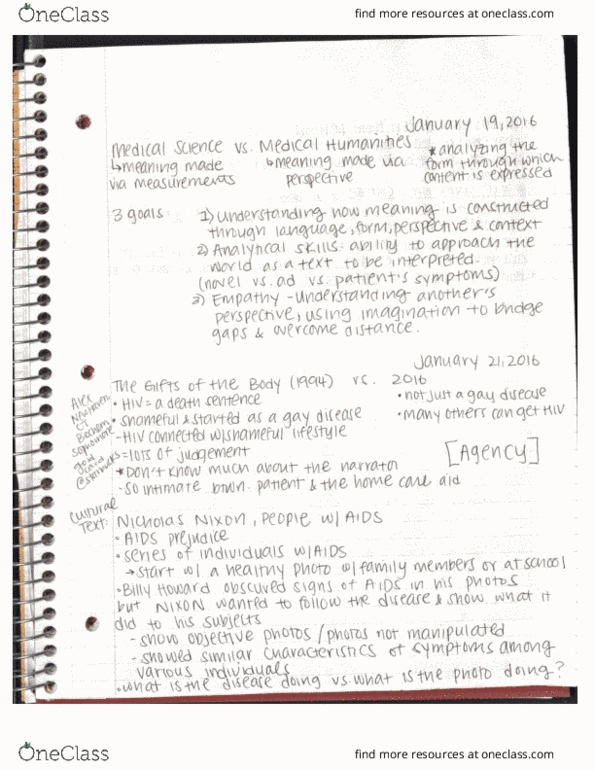 OneClass
find more resources at oneclass.com
January 19, 2016
Medical Science vs. Medical Humanities
↳meaning made ↳meaning made via *analyzing the
via measurements perspective form through which
content is expressed
3 goals: 1) Understanding how meaning is constructed
through language, form, perspective & context
2) Analytical skills: ability to approach the
world as a text to be interpreted.
(novel vs. ad vs. patient's symptoms)
3) Empathy - understanding another's
perspective, using imagination to bridge
gaps & overcome distance.
January 21, 2016
The Gifts of the Body (1994) vs. 2016
• HIV = a death sentence • not just a gay disease
• shameful & started as a gay disease • many others can get HIV
- HIV connected w/ shameful lifestyle
= lots of judgement [Agency]
* Don't know much about the narrator
- So intimate btwn. patient & the home care aid
Alex
CT
sophomore
gold
card
@starbucks
Cultural
Text: Nicholas Nixon, People w/ AIDS
• AIDS prejudice
• series of individuals w/ AIDS
→ start w/ a healthy photo w/ family members or at school
• Billy Howard obscured signs of AIDS in his photos
but NIXON wanted to follow the disease & show what it
did to his subjects
- show objective photos / photos not manipulated
- showed similar characteristics of symptoms among
various individuals
• what is the disease doing vs. what is the photo doing?
OneClass
find more resources at oneclass.com